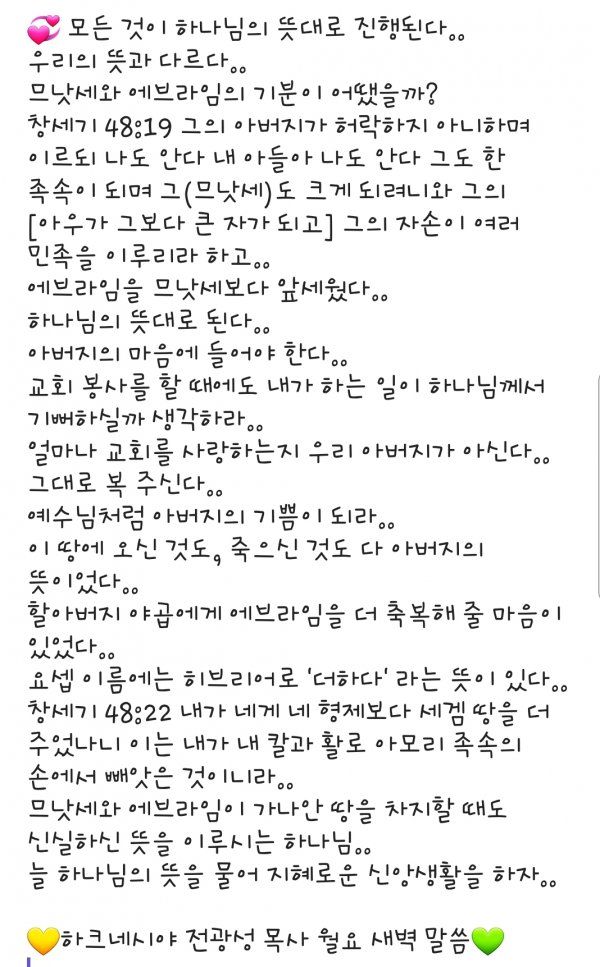 💞 모든 것이 하나님의 뜻대로 진행된다..
우리의 뜻과 다르다..
므낫세와 에브라임의 기분이 어땠을까?
창세기 48:19 그의 아버지가 허락하지 아니하며
이르되 나도 안다 내 아들아 나도 안다 그도 한
족속이 되며 그(므낫세)도 크게 되려니와 그의
[아우가 그보다 큰 자가 되고] 그의 자손이 여러
민족을 이루리라 하고..
에브라임을 므낫세보다 앞세웠다..
하나님의 뜻대로 된다..
아버지의 마음에 들어야 한다..
교회 봉사를 할 때에도 내가 하는 일이 하나님께서
기뻐하실까 생각하라..
얼마나 교회를 사랑하는지 우리 아버지가 아신다..
그대로 복 주신다..
예수님처럼 아버지의 기쁨이 되라..
이 땅에 오신 것도, 죽으신 것도 다 아버지의
뜻이었다..
할아버지 야곱에게 에브라임을 더 축복해 줄 마음이
있었다..
요셉 이름에는 히브리어로 '더하다' 라는 뜻이 있다..
창세기 48:22 내가 네게 네 형제보다 세겜 땅을 더
주었나니 이는 내가 내 칼과 활로 아모리 족속의
손에서 빼앗은 것이니라..
므낫세와 에브라임이 가나안 땅을 차지할 때도
신실하신 뜻을 이루시는 하나님..
늘 하나님의 뜻을 물어 지혜로운 신앙생활을 하자..
💛하크네시야 전광성 목사 월요 새벽 말씀💚